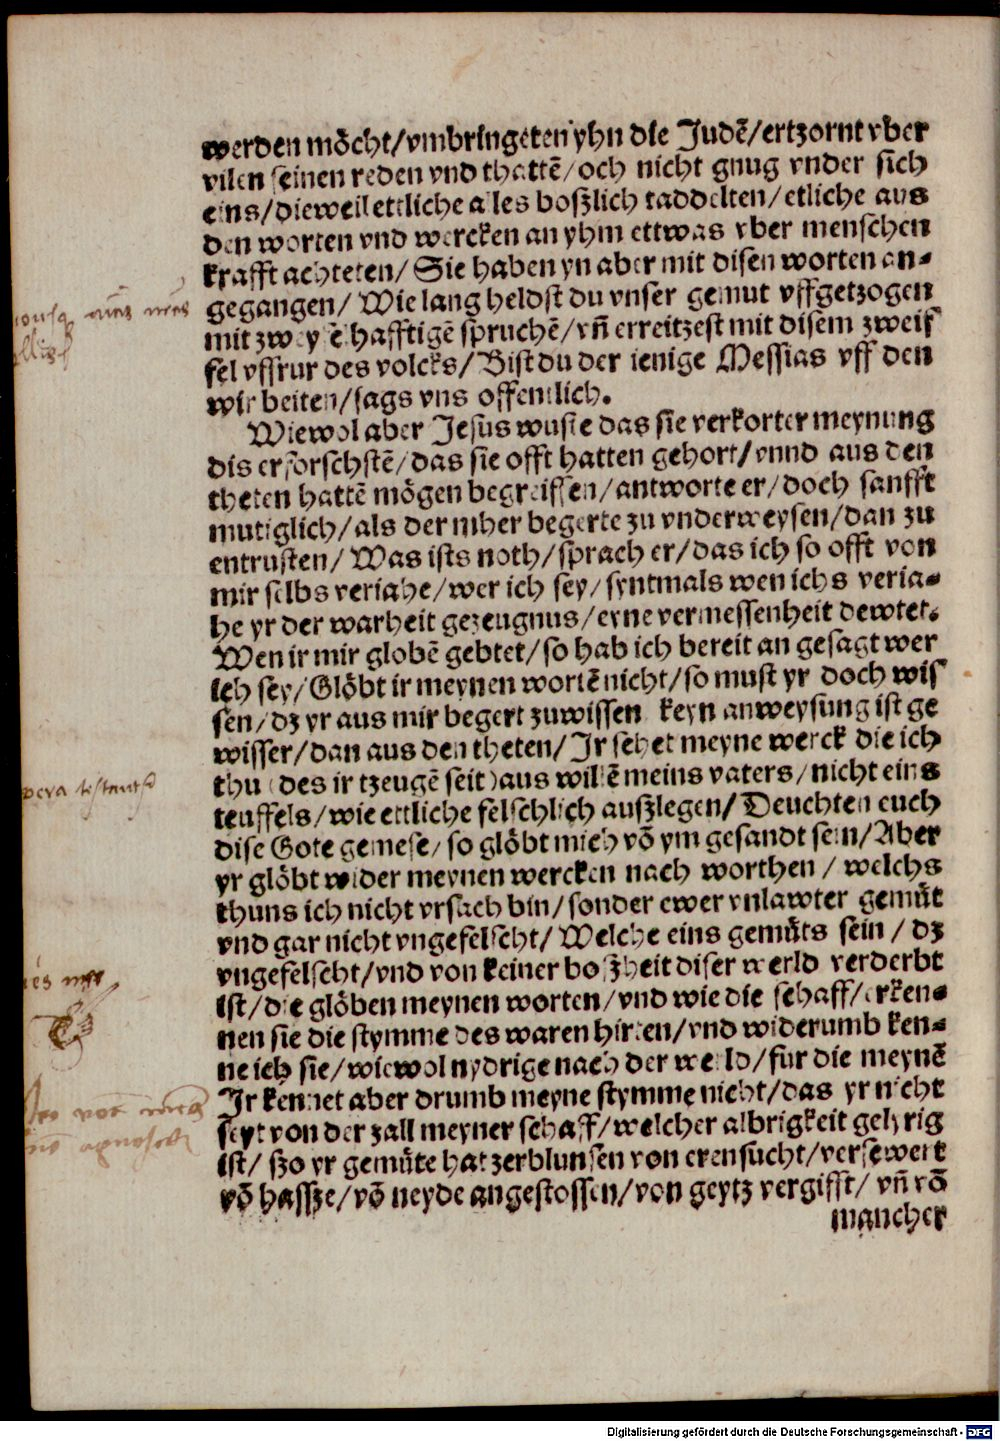 werden möcht/vmbringeten yhn die Judē/ertzornt vber
vilen seinen reden vnd thattē/och nicht gnug vnder sich
eins/dieweil ettliche alles boßlich taddelten/etliche aus
den worten vnd wercken an yhm ettwas vber menschen
krafft achteten/ Sie haben yn aber mit disen worten an-
gegangen/ Wie lang heldst du vnser gemut vffgetzogen
mit zweyē hafftigē spruchē/vn̄ erreitzest mit disem zweif
fel vffrur des volcks/ Bist du der ienige Messias vff den
wir beiten/sags vns offentlich.
Wiewol aber Jesus wuste das sie verkorter meynung
dis erforschstē/das sie offt hatten gehort/vnnd aus den
theten hattē mögen begreiffen/antworte er/doch sanfft
mutiglich/als der mher begerte zu vnderweysen/dan zu
entrusten/ Was ists noth/sprach er/das ich so offt von
mir selbs veriahe/wer ich sey/syntmals wen ichs veria-
he yr der warheit gezeugnus/eyne vermessenheit dewtet.
Wen ir mir globē gebtet/so hab ich bereit an gesagt wer
ich sey/Glöbt ir meynen wortē nicht/so must yr doch wis
sen/dz yr aus mir begert zuwissen keyn anweysung ist ge
wisser/dan aus den theten/Jr sehet meyne werck die ich
thu (des ir tzeugē seit) aus willē meins vaters/nicht eins
teuffels/wie ettliche felschlich außlegen/ Deuchten euch
dise Gote gemese/so glöbt mich vō ym gesandt sein/Aber
yr glöbt wider meynen wercken nach worthen/ welchs
thuns ich nicht vrsach bin/sonder ewer vnlawter gemüt
vnd gar nicht vngefelscht/ Welche eins gemüts sein/ dz
vngefelscht/vnd von keiner boßheit diser werld verderbt
ist/die glöben meynen worten/vnd wie die schaff/erken-
nen sie die stymme des waren hirten/vnd widerumb ken-
ne ich sie/wiewol nydrige nach der werld/fur die meynē
Jr kennet aber drumb meyne stymme nicht/das yr nicht
seyt von der zall meyner schaff/welcher albrigkeit gelyrig
ist/ ßo yr gemüte hat zerblunsen von erensucht/versewert
vō haßze/vō neyde angestossen/von geytz vergifft/ vn̄ vō
mancher
opera
Digitalisierung gefördert durch die Deutsche Forschungsgemeinschaft - DFG